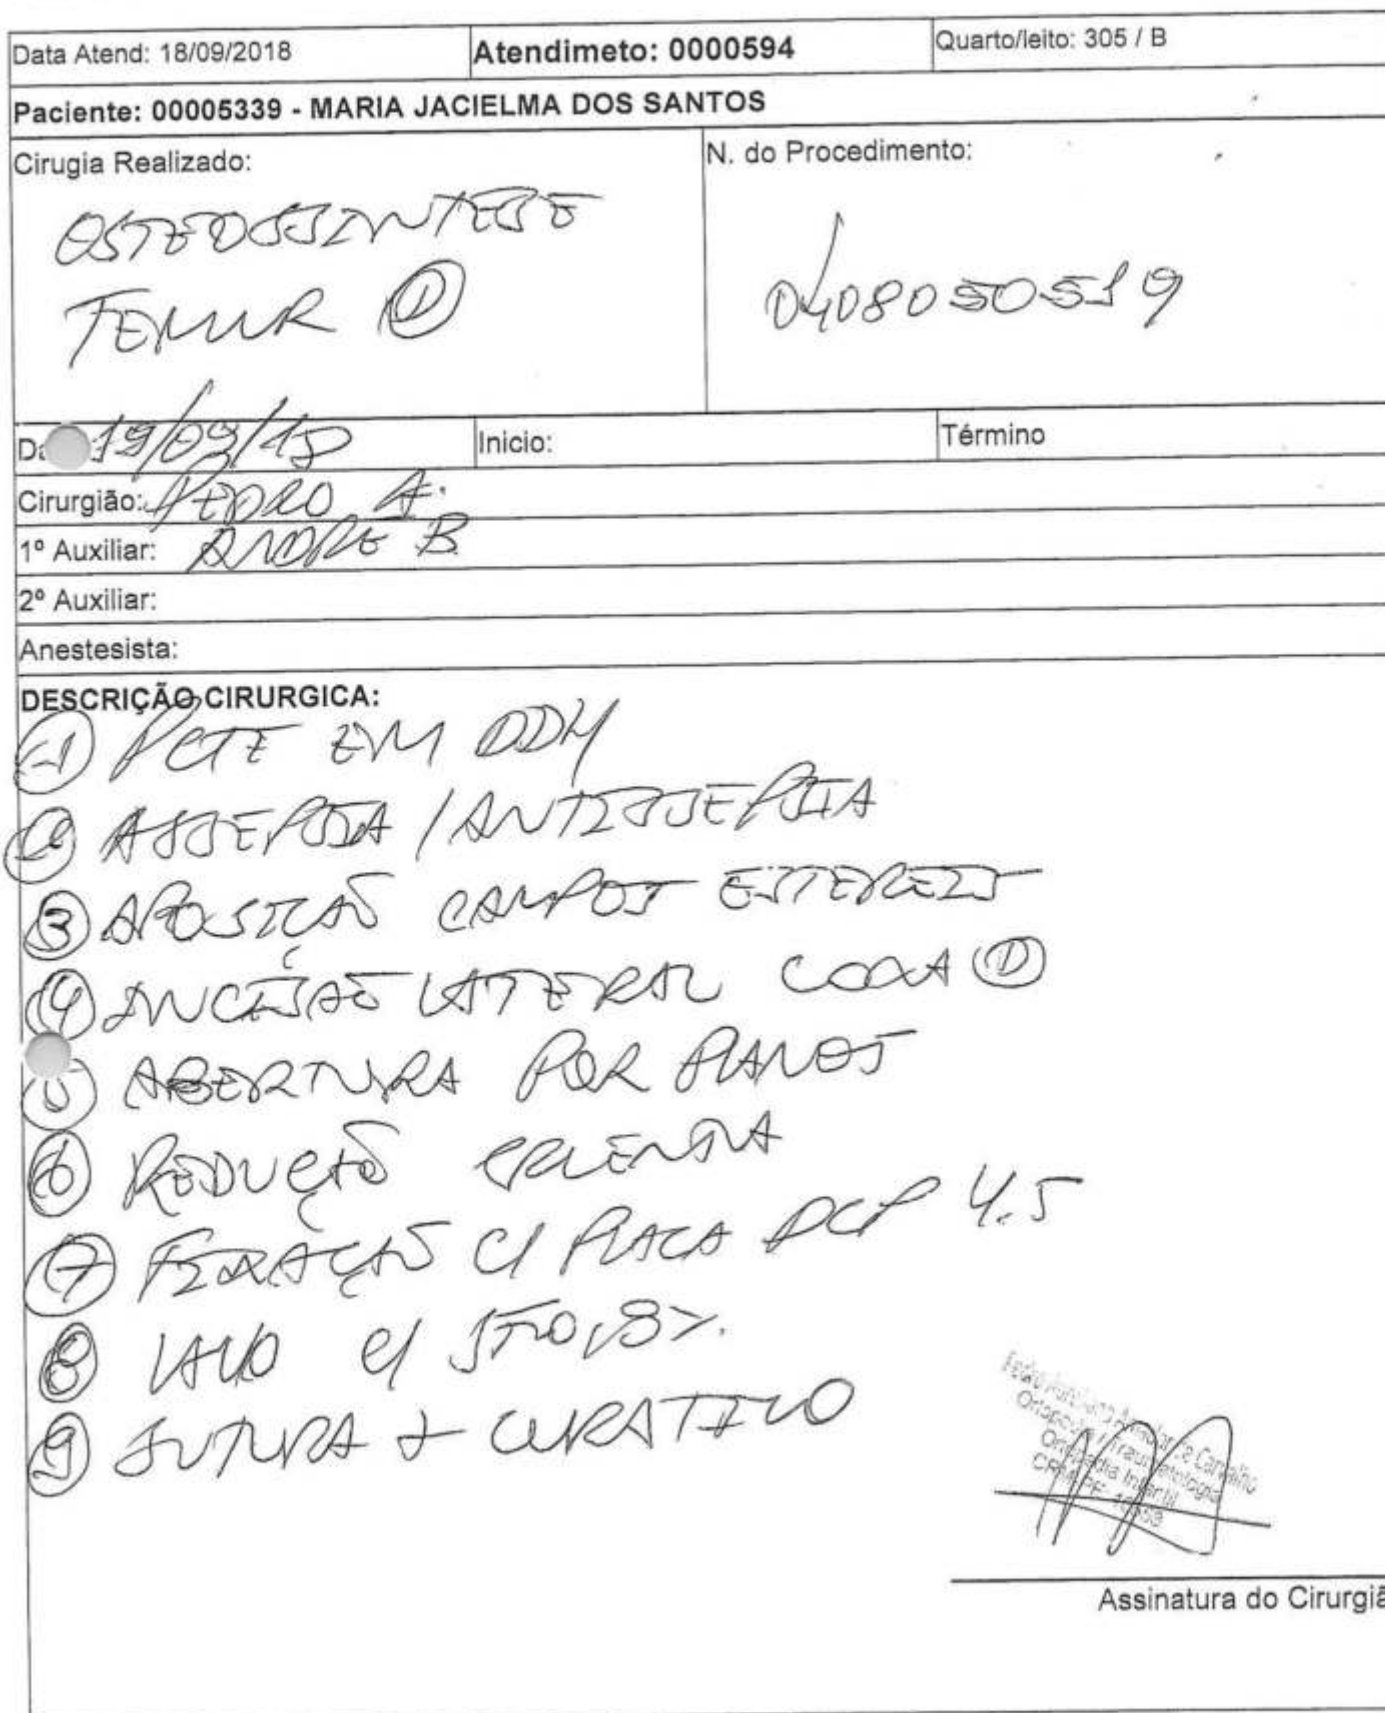 Data Atend: 18/09/2018 Atendimeto: 0000594 Quarto/leito: 305 / B
Paciente: 00005339 - MARIA JACIELMA DOS SANTOS
Cirugia Realizado: N. do Procedimento:
OSTEOSSINTESE
FEMUR (D)
0408050519
19/09/18 Inicio: Término
Cirurgião: PEDRO A.
1º Auxiliar: ANDRE B
2º Auxiliar:
Anestesista:
DESCRIÇÃO CIRURGICA:
1 PCTE EM DDH
2 ASSEPSIA / ANTISSEPSIA
3 APOSIÇÃO CAMPOS ESTEREIS
4 INCISÃO LATERAL COXA (D)
5 ABERTURA POR PLANOS
6 REDUÇÃO CRUENTA
7 FIXAÇÃO C/ PLACA DCP 4.5
8 LAVO C/
9 SUTURA + CURATIVO
Ortopedia Infantil
Assinatura do Cirurgiã